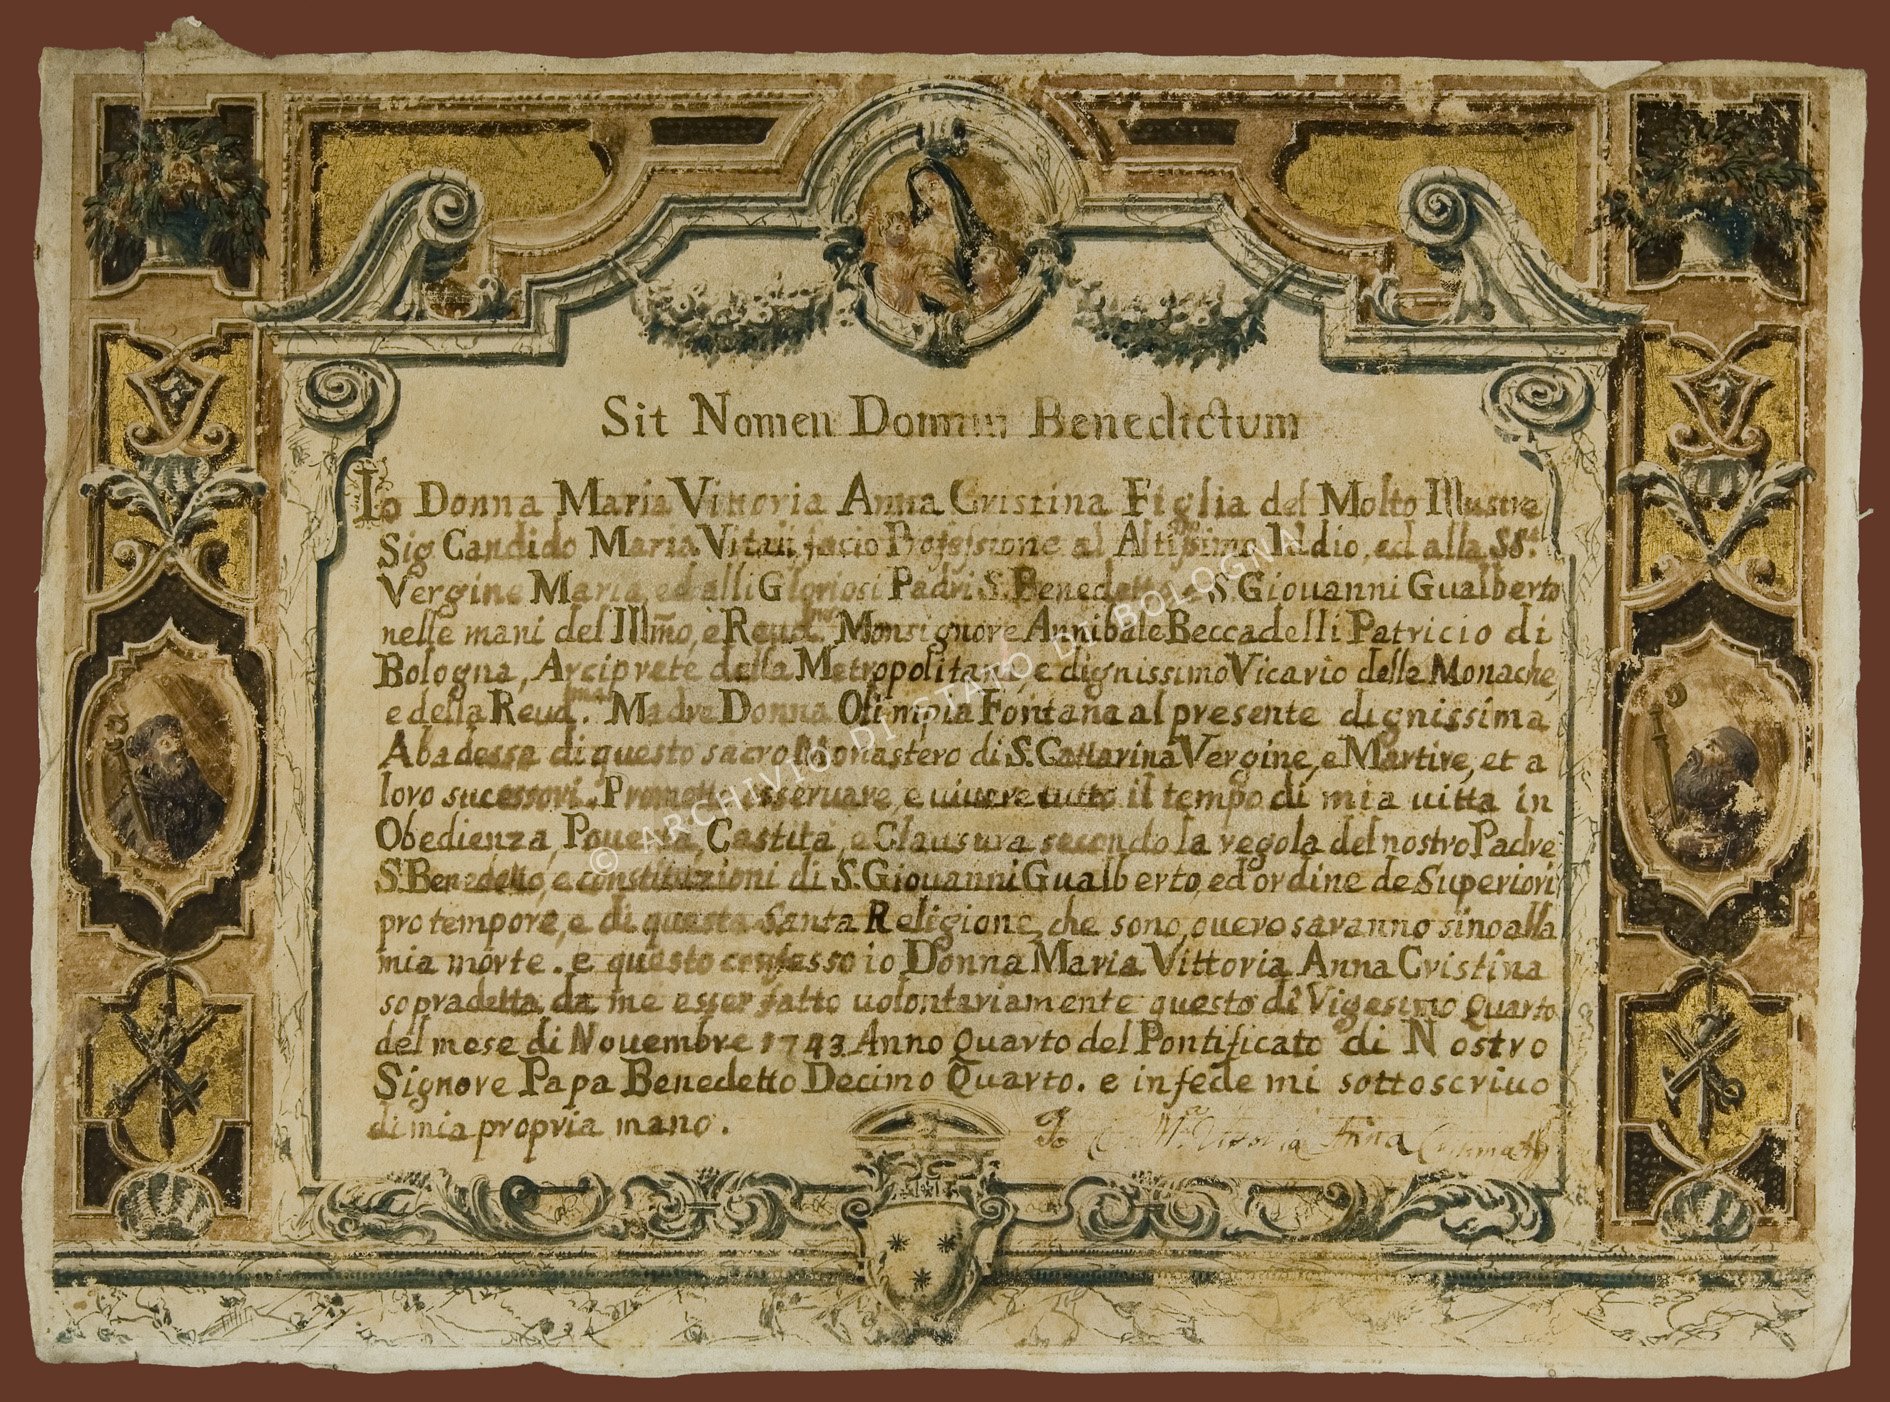 Sit Nomen Domini Benedictum
Io Donna Maria Vittoria Anna Cristina Figlia del Molto Illustre
Sig Candido Maria Vitali, facio Professione al Altissimo Iddio, ed alla SS.ª
Vergine Maria, ed alli Gloriosi Padri S. Benedetto, e S. Giouanni Gualberto
nelle mani del Illmo, e Reud.mo Monsignore Annibale Beccadelli Patricio di
Bologna, Arciprete della Metropolitana, e dignissimo Vicario delle Monache,
e della Reud.ma Madre Donna Olimpia Fontana al presente dignissima
Abadessa di questo sacro Monastero di S. Cattarina Vergine, e Martire, et a
loro sucessori. Prometto osseruare, e uiuere tutto il tempo di mia uitta in
Obedienza, Pouertà, Castità, e Clausura secondo la regola del nostro Padre
S. Benedetto, e constituzioni di S. Giouanni Gualberto, ed ordine de Superiori
pro tempore, e di questa Santa Religione, che sono, ouero saranno sino alla
mia morte. e questo confesso io Donna Maria Vittoria Anna Cristina
sopradetta da me esser fatto uolontariamente questo dì Vigesimo Quarto
del mese di Nouembre 1743 Anno Quarto del Pontificato di Nostro
Signore Papa Benedetto Decimo Quarto. e in fede mi sottoscriuo
di mia propria mano.
Io Mª Vittoria Anna
© ARCHIVIO DI STATO DI BOLOGNA